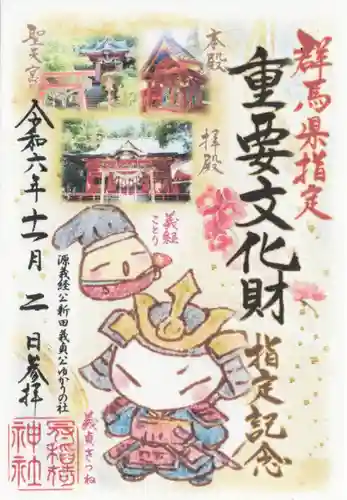 群馬県指定
重要文化財
指定記念
本殿
拝殿
聖天宮
義経
ことり
源義経公新田義貞公ゆかりの社
義貞きつね
令和六年十一月二日参拝
冠稲荷
神社